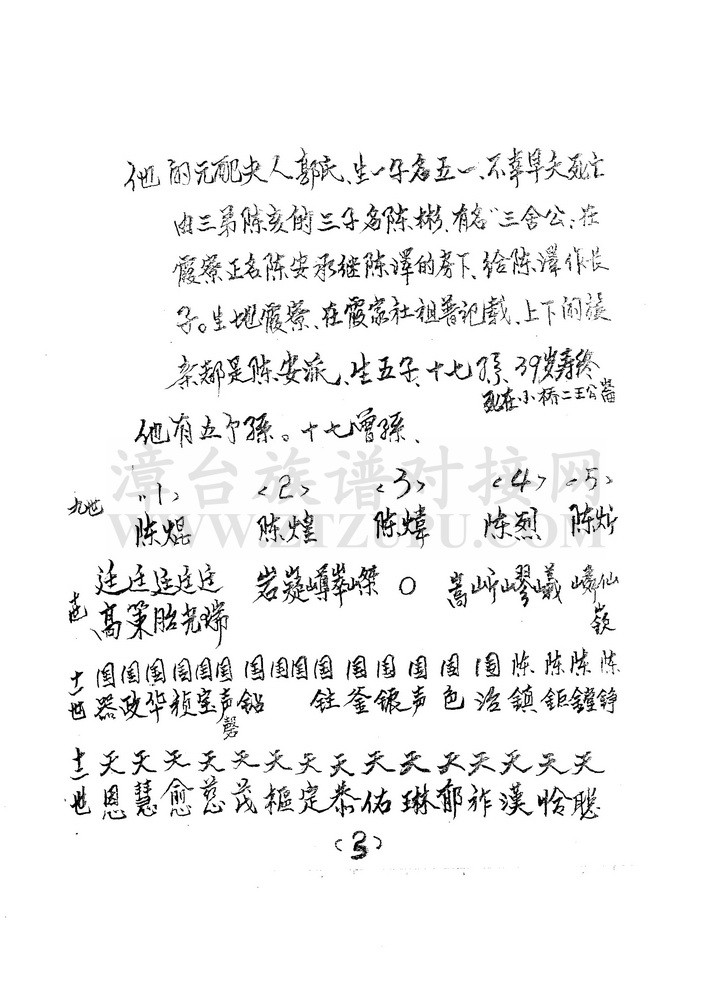 他的元配夫人郭氏、生一子名五一、不幸早夭死亡
由三弟陈亥的三子名陈彬、有名"三舍公，在
霞寮正名陈安承继陈泽的房下、给陈泽作长
子。生地霞寮、在霞寮社祖普记载、上下间族
亲都是陈安派、生五子、十七孙、39岁寿终
死在小桥二王公
他有五个孫。十七曾孫、
漳台族谱对接网
WWW.ZTZUPU.COM
九世 <1> <2> <3> <4> <5>
陈焜 陈煌 陈煒 陈烈 陈炘
十世 廷廷廷廷廷 岩嶷嶟崒嵥 〇 嵩岓嵺嶬 嶙仙
高策胎光瑞 嶺
十一世 国国国国国国 国国国国 国国国 国 国 陈陈陈陈
器政华祯宝声钻 钰釜银声色治鎮鉅鏜铮
磬
十二世 天天天天天天天天天天天天天天天天
恩慧愈慈茂樞定泰佑琳郁祚漢恰聪
(3)